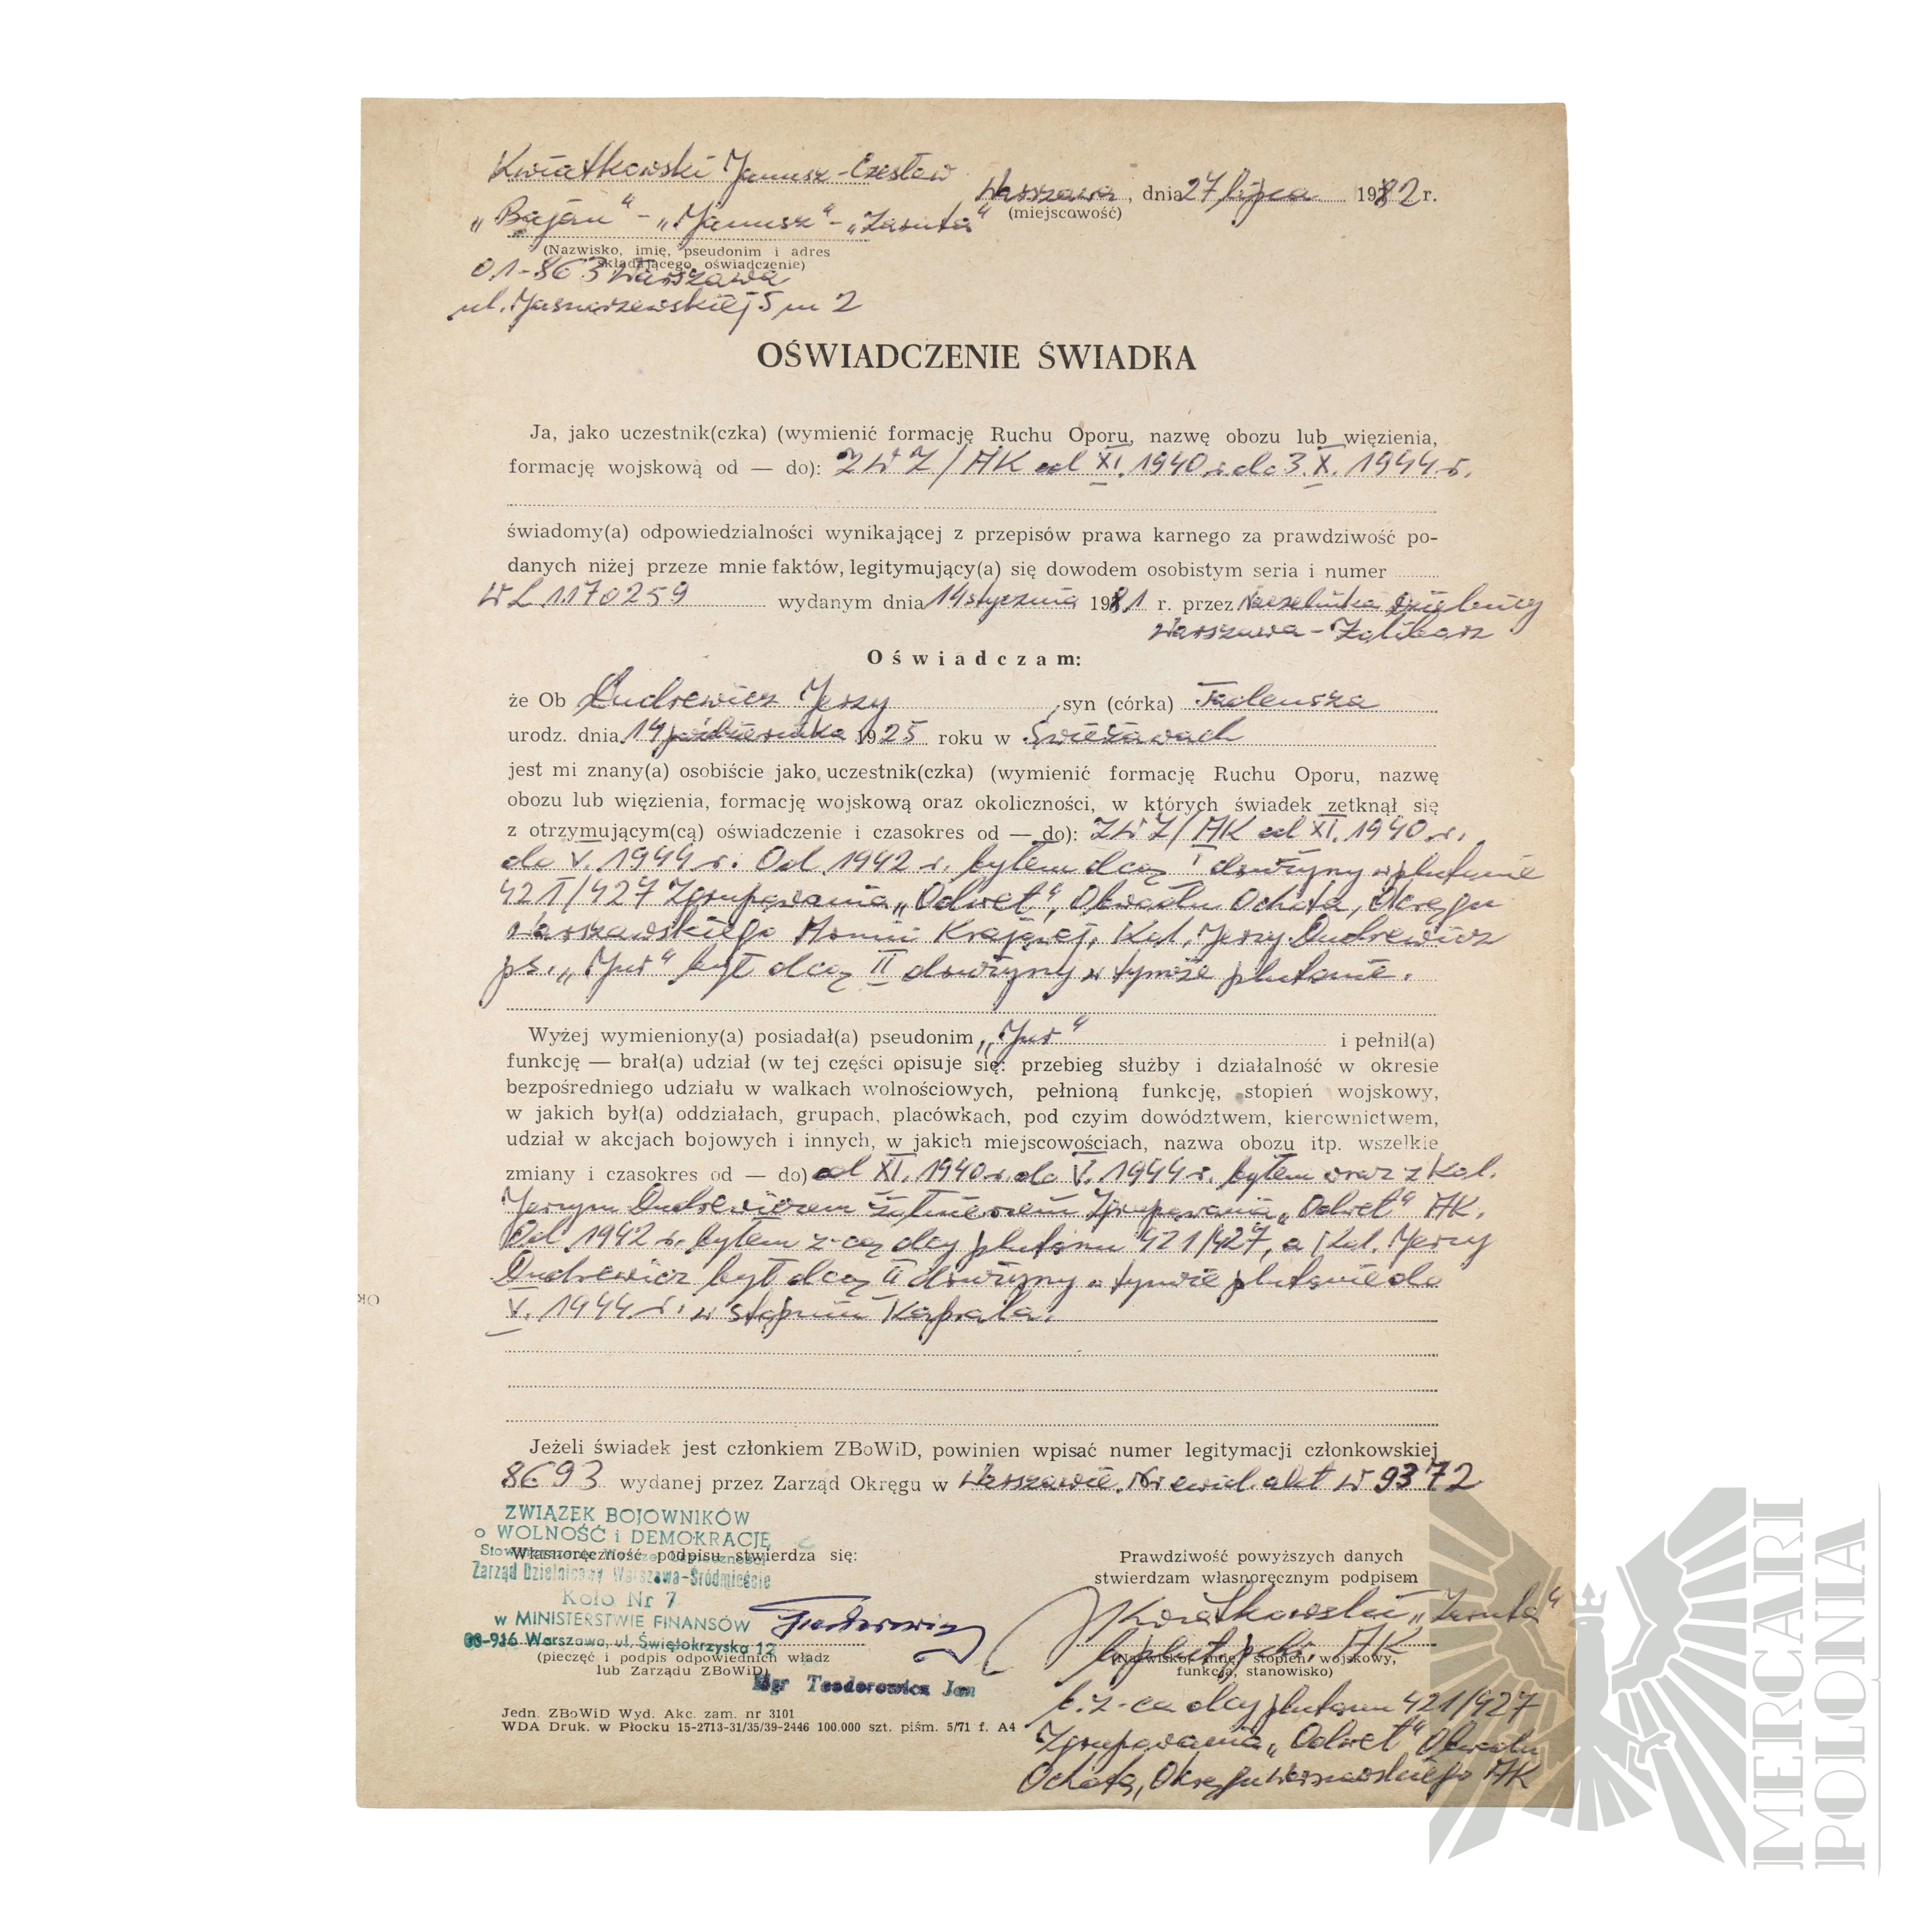 Kwiatkowski Janusz-Czesław
Warszawa, dnia 27 lipca 1982 r.
(miejscowość)
„Bajan" - „Janusz" - „Zaruta"
(Nazwisko, imię, pseudonim i adres
składającego oświadczenie)
01-863 Warszawa
ul. Jasnorzewskiej 5 m 2
OŚWIADCZENIE ŚWIADKA
Ja, jako uczestnik(czka) (wymienić formację Ruchu Oporu, nazwę obozu lub więzienia,
formację wojskową od — do): ZWZ/AK od XI. 1940 r. do 3. X. 1944 r.
świadomy(a) odpowiedzialności wynikającej z przepisów prawa karnego za prawdziwość po-
danych niżej przeze mnie faktów, legitymujący(a) się dowodem osobistym seria i numer
WL 1170259 wydanym dnia 14 stycznia 1981 r. przez Naczelnika Dzielnicy
Warszawa-Żoliborz
Oświadczam:
że Ob Dudrewicz Jerzy syn (córka) Tadeusza
urodz. dnia 14 października 1925 roku w Świeżawach
jest mi znany(a) osobiście jako uczestnik(czka) (wymienić formację Ruchu Oporu, nazwę
obozu lub więzienia, formację wojskową oraz okoliczności, w których świadek zetknął się
z otrzymującym(cą) oświadczenie i czasokres od — do): ZWZ/AK od XI. 1940 r.
do V. 1944 r. Od 1942 r. byłem dcą I drużyny w plutonie
421/427 Zgrupowania „Odwet", Obwodu Ochota, Okręgu
Warszawskiego Armii Krajowej. Kol. Jerzy Dudrewicz
ps. „Jur" był dcą II drużyny w tymże plutonie.
Wyżej wymieniony(a) posiadał(a) pseudonim „Jur" i pełnił(a)
funkcję — brał(a) udział (w tej części opisuje się: przebieg służby i działalność w okresie
bezpośredniego udziału w walkach wolnościowych, pełnioną funkcję, stopień wojskowy,
w jakich był(a) oddziałach, grupach, placówkach, pod czyim dowództwem, kierownictwem,
udział w akcjach bojowych i innych, w jakich miejscowościach, nazwa obozu itp. wszelkie
zmiany i czasokres od — do) od XI. 1940 r. do V. 1944 r. byłem wraz z Kol.
Jerzym Dudrewiczem żołnierzem Zgrupowania „Odwet" AK.
Od 1942 r. byłem z-cą dcy plutonu 421/427, a Kol. Jerzy
Dudrewicz był dcą II drużyny w tymże plutonie do
V. 1944 r. w stopniu Kaprala.
Jeżeli świadek jest członkiem ZBoWiD, powinien wpisać numer legitymacji członkowskiej
8693 wydanej przez Zarząd Okręgu w Warszawie. Nr ewid. akt W 9372
ZWIĄZEK BOJOWNIKÓW
o WOLNOŚĆ i DEMOKRACJĘ
Własnoręczność podpisu stwierdza się:
Zarząd Dzielnicowy Warszawa-Śródmieście
Koło Nr 7
w MINISTERSTWIE FINANSÓW
00-916 Warszawa, ul. Świętokrzyska 12
(pieczęć i podpis odpowiednich władz
lub Zarządu ZBoWiD)
Teodorowicz
Mgr Teodorowicz Jan
Prawdziwość powyższych danych
stwierdzam własnoręcznym podpisem
Kwiatkowski „Zaruta"
AK
(Nazwisko, imię, stopień wojskowy,
funkcja, stanowisko)
b. z-ca dcy plutonu 421/427
Zgrupowania „Odwet" Obwodu
Ochota, Okręgu Warszawskiego AK
Jedn. ZBoWiD Wyd. Akc. zam. nr 3101
WDA Druk. w Płocku 15-2713-31/35/39-2446 100.000 szt. piśm. 5/71 f. A4
MERCARI
POLONIA